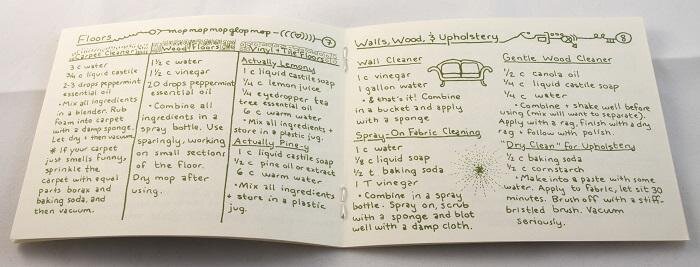 Floors
mop mop mop glop mop
7
Carpet Cleaner
3 c water
3/4 c liquid castile
2-3 drops peppermint
essential oil
• Mix all ingredients
in a blender. Rub
foam into carpet
with a damp sponge.
Let dry + then vacuum.
If your carpet
just smells funny,
sprinkle the
carpet with equal
parts borax and
baking soda, and
then vacuum.
Wood Floors
1 1/2 c water
1 1/2 c vinegar
20 drops peppermint
essential oil
• Combine all
ingredients in a
spray bottle. Use
sparingly, working
on small sections
of the floor.
Dry mop after
using.
Vinyl + Tile Floors
Actually Lemony
1 c liquid castile soap
1/4 c lemon juice
1/4 eyedropper tea
tree essential oil
6 c warm water
• Mix all ingredients +
store in a plastic jug.
Actually Pine-y
1 c liquid castile soap
1/2 c pine oil or extract
6 c warm water
• Mix all ingredients
+ store in a plastic
jug.
Walls, Wood, & Upholstery
8
Wall Cleaner
1 c vinegar
1 gallon water
• & that's it! Combine
in a bucket and apply
with a sponge
Spray-On Fabric Cleaning
1 c water
1/8 c liquid soap
1/2 t baking soda
1 T vinegar
• Combine in a spray
bottle. Spray on, scrub
with a sponge and blot
well with a damp cloth.
Gentle Wood Cleaner
1/2 c canola oil
1/4 c liquid castile
1/4 c water
• Combine + shake well before
using (mix will want to separate).
Apply with a rag, finish with a dry
rag + follow with polish.
"Dry Clean" for Upholstery
1/2 c baking soda
1/2 c cornstarch
• Make into a paste with some
water. Apply to fabric, let sit 30
minutes. Brush off with a stiff-
bristled brush. Vacuum
seriously.